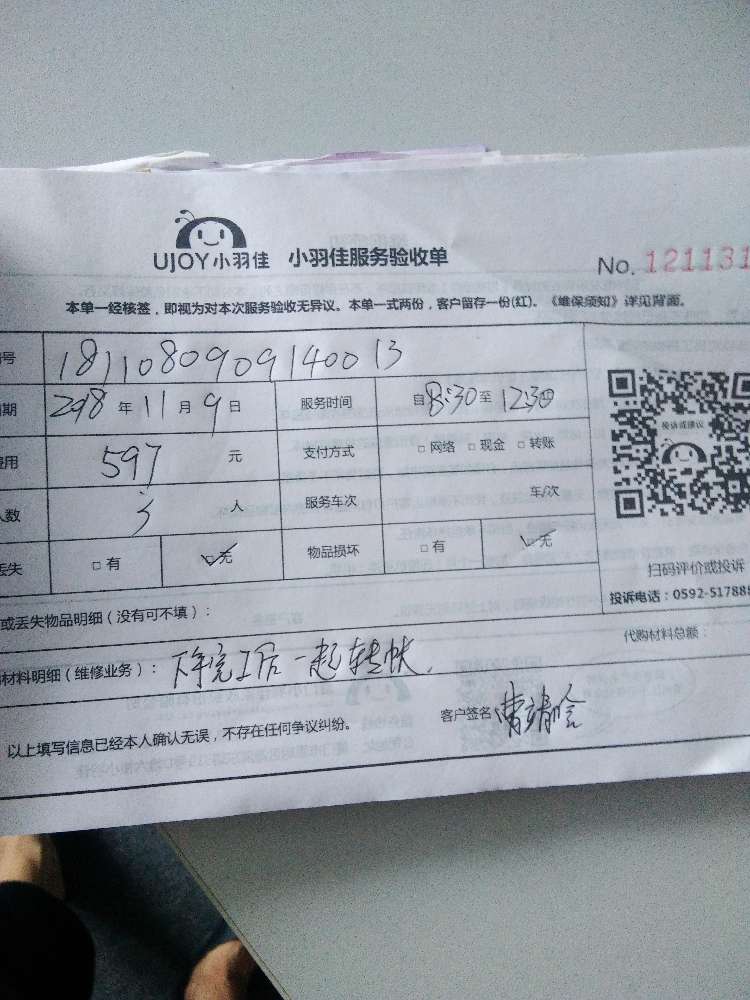 UJOY小羽佳 小羽佳服务验收单
No. 121131
本单一经核签，即视为对本次服务验收无异议。本单一式两份，客户留存一份(红)。《维保须知》详见背面。
号 18110809091400 13
期 2018 年 11 月 9 日 服务时间 自 8:30 至 12:30
费用 597 元 支付方式 □ 网络 □ 现金 □ 转账
人数 3 人 服务车次 车/次
丢失 □ 有 □ 无 物品损坏 □ 有 □ 无
投诉或建议
扫码评价或投诉
投诉电话：0592-517888
或丢失物品明细（没有可不填）：
代购材料总额：
材料明细（维修业务）： 下午完工后一起转帐.
以上填写信息已经本人确认无误，不存在任何争议纠纷。 客户签名